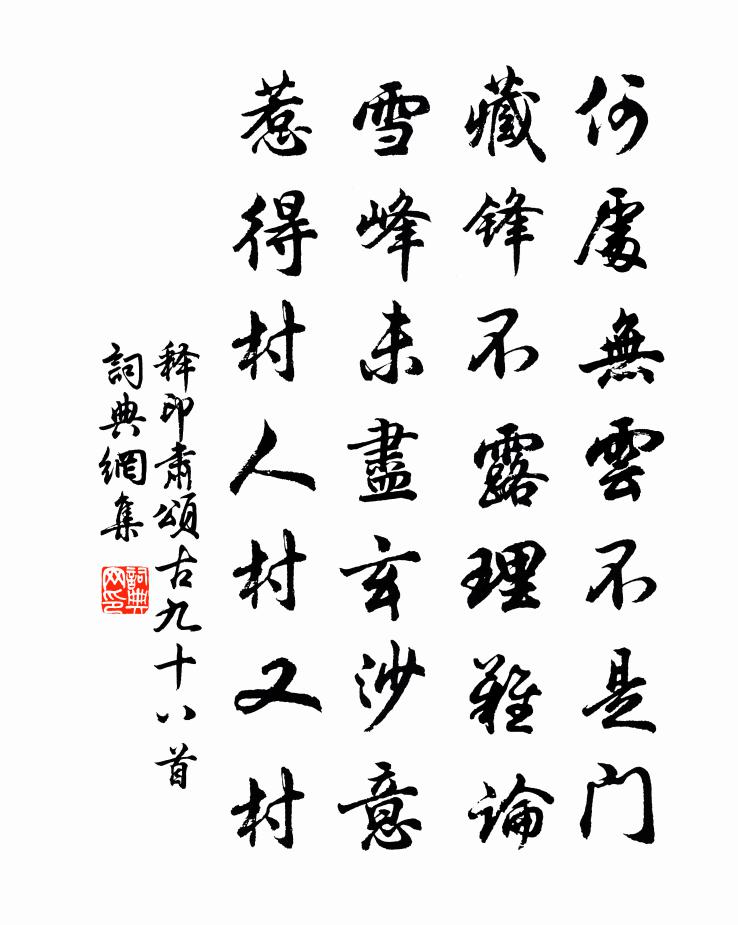 何處無雲不是門
藏锋不露理難論
雪峰未盡玄沙意
惹得村人村又村
释印肅頌古九十八首
詞典網集
詞典网印